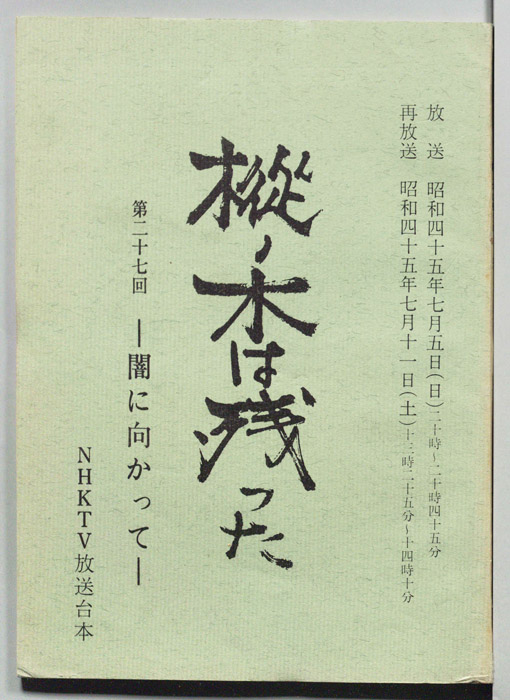 放送 昭和四十五年七月五日(日)二十時~二十時四十五分
再放送 昭和四十五年七月十一日(土)十三時二十五分~十四時十分
樅ノ木は残った
第二十七回 ―闇に向かって―
NHKTV放送台本